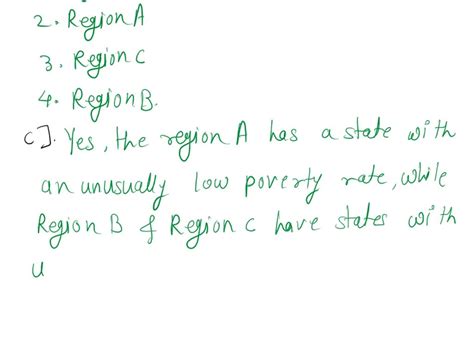 2. Region A
3. Region C
4. Region B.
C]. Yes, the region A has a state with
an unusually low poverty rate, while
Region B & Region C have states with
u